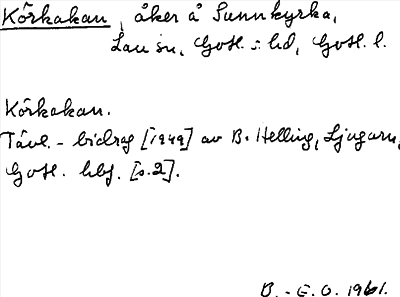 Körkakan, åker å Sunnkyrka,
Lau sn, Gotl. s:hd, Gotl. l.
Körkakan.
Tävl.-bidrag [1949] av B. Helling, Ljugarn,
Gotl. hbf. [s.2].
B.-E.O. 1961.